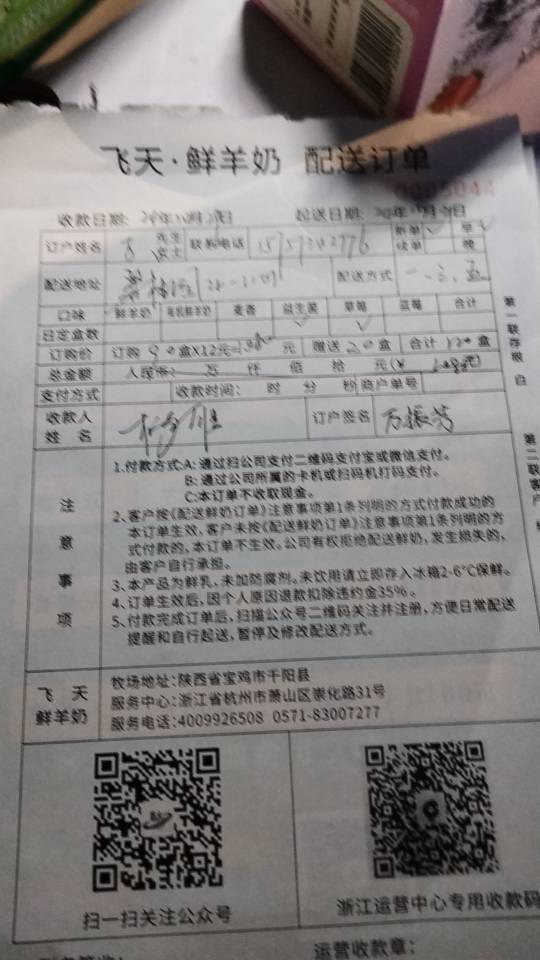 飞天·鲜羊奶 配送订单
收款日期: 年 月 日 起送日期: 年 月 日
订户姓名 先生 女士 联系电话 新单 续单 早 晚
配送地址 配送方式
口味 鲜羊奶 有机鲜羊奶 麦香 益生菌 草莓 蓝莓 合计
日定盒数
订购价 订购 90 盒X12元= 元 赠送 盒 合计 盒
总金额 人民币: 万 仟 佰 拾 元(¥
支付方式 收款时间: 时 分 秒 商户单号
收款人 姓名 订户签名 万振芳
第一联存根 白
注意事项
1.付款方式:A: 通过扫公司支付二维码支付宝或微信支付。
B: 通过公司所属的卡机或扫码机打码支付。
C:本订单不收取现金。
2、客户按《配送鲜奶订单》注意事项第1条列明的方式付款成功的
本订单生效,客户未按《配送鲜奶订单》注意事项第1条列明的方
式付款的,本订单不生效。公司有权拒绝配送鲜奶,发生损失的,
由客户自行承担。
3、本产品为鲜乳,未加防腐剂。未饮用请立即存入冰箱2-6°C保鲜。
4、订单生效后,因个人原因退款扣除违约金35%。
5、付款完成订单后,扫描公众号二维码关注并注册,方便日常配送
提醒和自行起送,暂停及修改配送方式。
第二联客户
飞天
鲜羊奶
牧场地址:陕西省宝鸡市千阳县
服务中心:浙江省杭州市萧山区崇化路31号
服务电话:4009926508 0571-83007277
扫一扫关注公众号
浙江运营中心专用收款码
运营收款章: